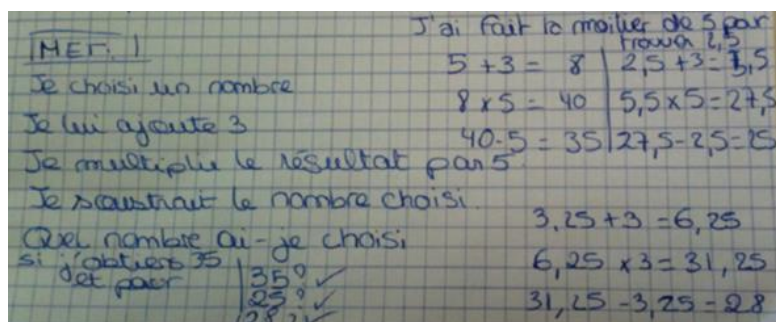 MET. 1
Je choisi un nombre
Je lui ajoute 3
Je multiplie le résultat par 5
Je soustrait le nombre choisi.
Quel nombre ai-je choisi
si j'obtiens 35
et pour
35? ✓
25? ✓
28? ✓
J'ai fait la moitier de 5 par
trouver 2,5
5 + 3 = 8
8 x 5 = 40
40-5 = 35
2,5 + 3 = 5,5
5,5 x 5 = 27,5
27,5 - 2,5 = 25
3,25 + 3 = 6,25
6,25 x 3 = 31,25
31,25 - 3,25 = 28